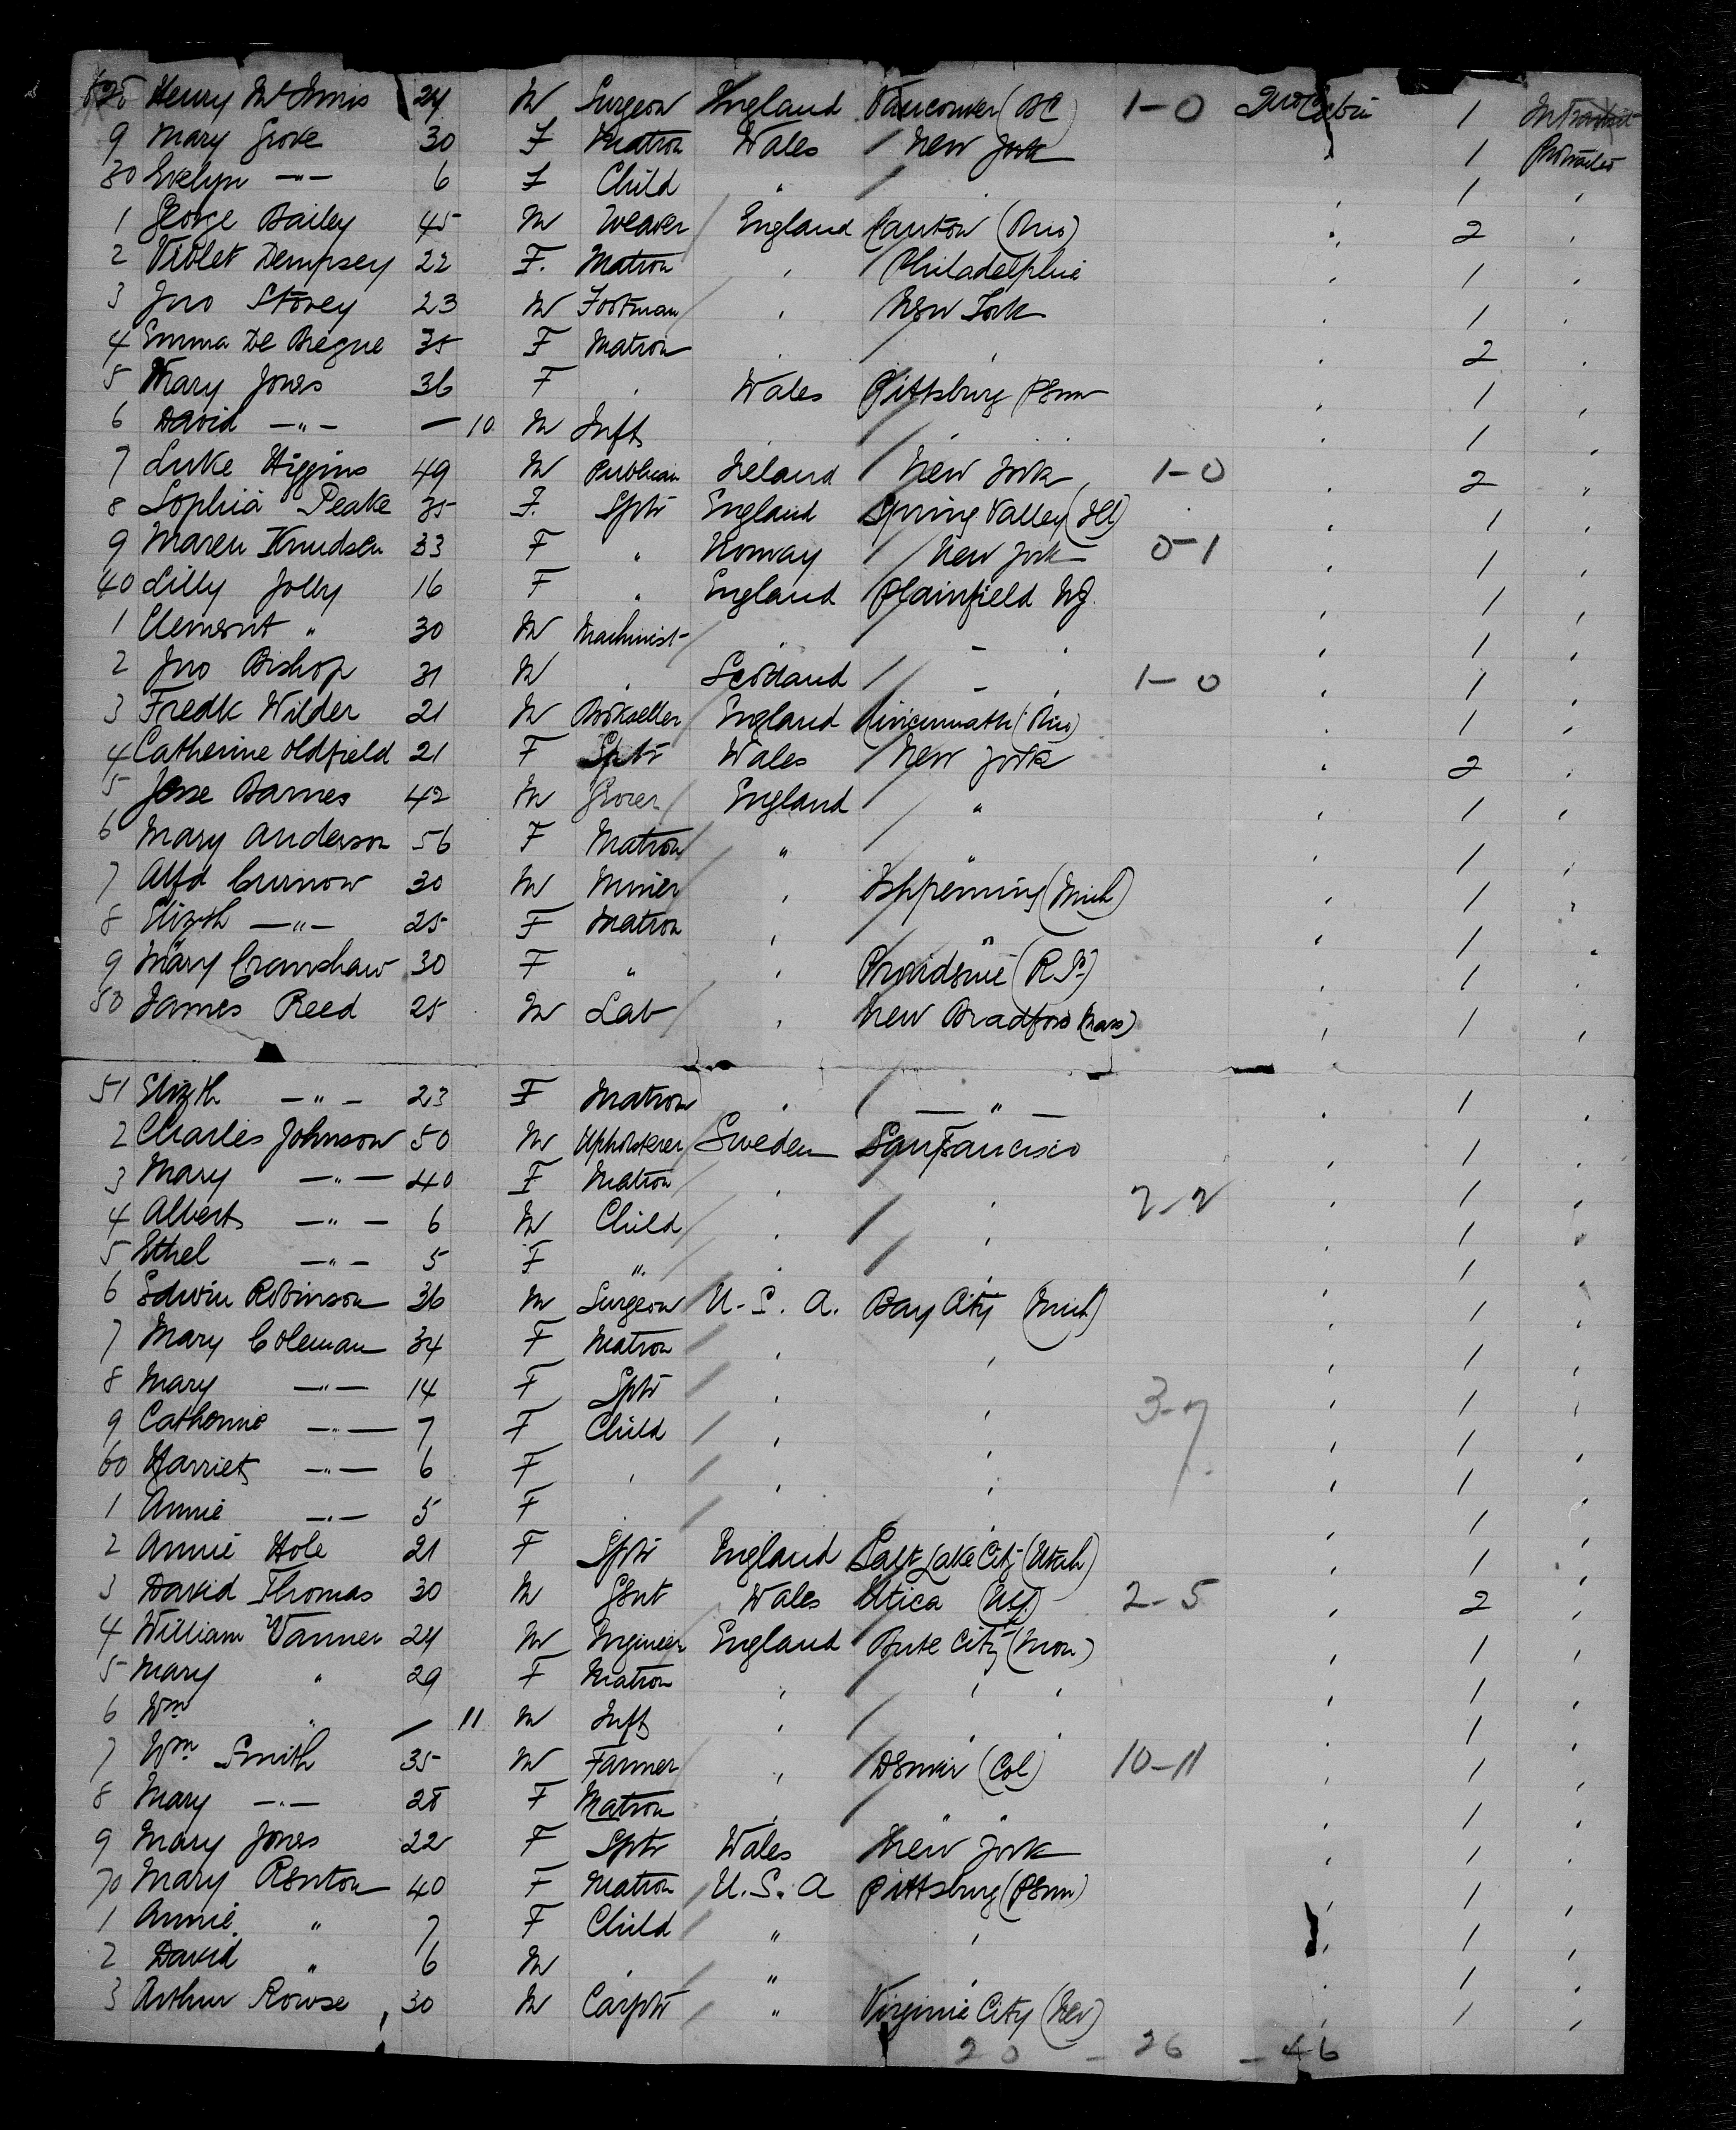 Henry McInnis 24 M Surgeon England Vancouver (BC) 1-0 2nd Cabin 1 In Transit
9 Mary Grove 30 F Matron Wales / New York " 1 Protracted
30 Evelyn -"- 6 F Child " / " " 1 "
1 George Bailey 45 M Weaver / England Canton (Ohio) " 2 "
2 Violet Dempsey 22 F. Matron " / Philadelphia " 1 "
3 Jno Storey 23 M Footman / " New York " 1 "
4 Emma De Bregne 35 F Matron " / " " 2 "
5 Mary Jones 36 F " Wales Pittsburg Penn " 1 "
6 David -"- - 10 M Inft " / " " 1 "
7 Luke Higgins 49 M Publican Ireland / New York 1-0 " 2 "
8 Sophia Peake 35 F. Sptr England Spring Valley (Ill) " 1 "
9 Maren Knudsen 33 F " Norway / New York 0-1 " 1 "
40 Lilly Jolly 16 F " England Plainfield NJ. " 1 "
1 Clement " 30 M Machinist / " / - " " 1 "
2 Jno Bishop 31 M " Scotland / - " 1-0 " 1 "
3 Fredk Wilder 21 M Bookseller England Cincinnatti (Ohio) " 1 "
4 Catherine Oldfield 21 F Sptr Wales / New York " 2 "
5 Jesse Barnes 42 M Grocer / England / " " 1 "
6 Mary Anderson 56 F Matron / " / " " 1 "
7 Alfd Curnow 30 M Miner / " Ishpeming (Mich) " 1 "
8 Elizth -"- 25 F Matron " / " " 1 "
9 Mary Cranshaw 30 F " " Providence (R.I.) " 1 "
50 James Reed 25 M Lab / " New Bradford (Mass) " 1 "
51 Elizth -"- 23 F Matron " / -"- " 1 "
2 Charles Johnson 50 M Upholsterer / Sweden San Francisco " 1 "
3 Mary -"- 40 F Matron / " / " 2-2 " 1 "
4 Albert -"- 6 M Child / " / " " 1 "
5 Ethel -"- 5 F " / " / " " 1 "
6 Edwin Robinson 36 M Surgeon / U.S.A. Bay City (Mich) " 1 "
7 Mary Coleman 34 F Matron / " " " 1 "
8 Mary -"- 14 F Sptr / " " 3-7 " 1 "
9 Catherine -"- 7 F Child / " " " 1 "
60 Harriet -"- 6 F " / " " " 1 "
1 Annie -"- 5 F " / " " " 1 "
2 Annie Hole 21 F Sptr England Salt Lake City (Utah) " 1 "
3 David Thomas 30 M Gent Wales Utica (NY) 2-5 " 2 "
4 William Vanner 24 M Engineer England Bute City (Mon) " 1 "
5 Mary " 29 F Matron " / " " " 1 "
6 Wm " - 11 M Inft " / " " " 1 "
7 Wm Smith 35 M Farmer / " / Denver (Col) 10-11 " 1 "
8 Mary -"- 28 F Matron " / " " " 1 "
9 Mary Jones 22 F Sptr Wales New York " 1 "
70 Mary Renton 40 F Matron U.S.A Pittsburg (Penn) " 1 "
1 Annie " 7 F Child / " " " 1 "
2 David " 6 M " / " " " 1 "
3 Arthur Rowse 30 M Carptr / " Virginia City (Nev) " 1 "
20 - 26 - 46